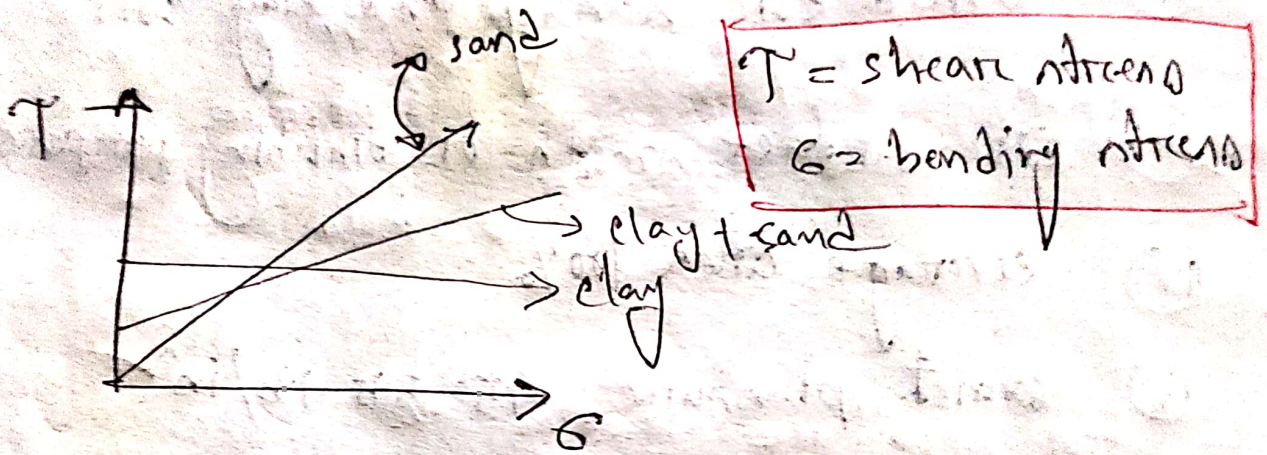 sand
τ
τ = shear stress
σ = bending stress
clay + sand
clay
σ